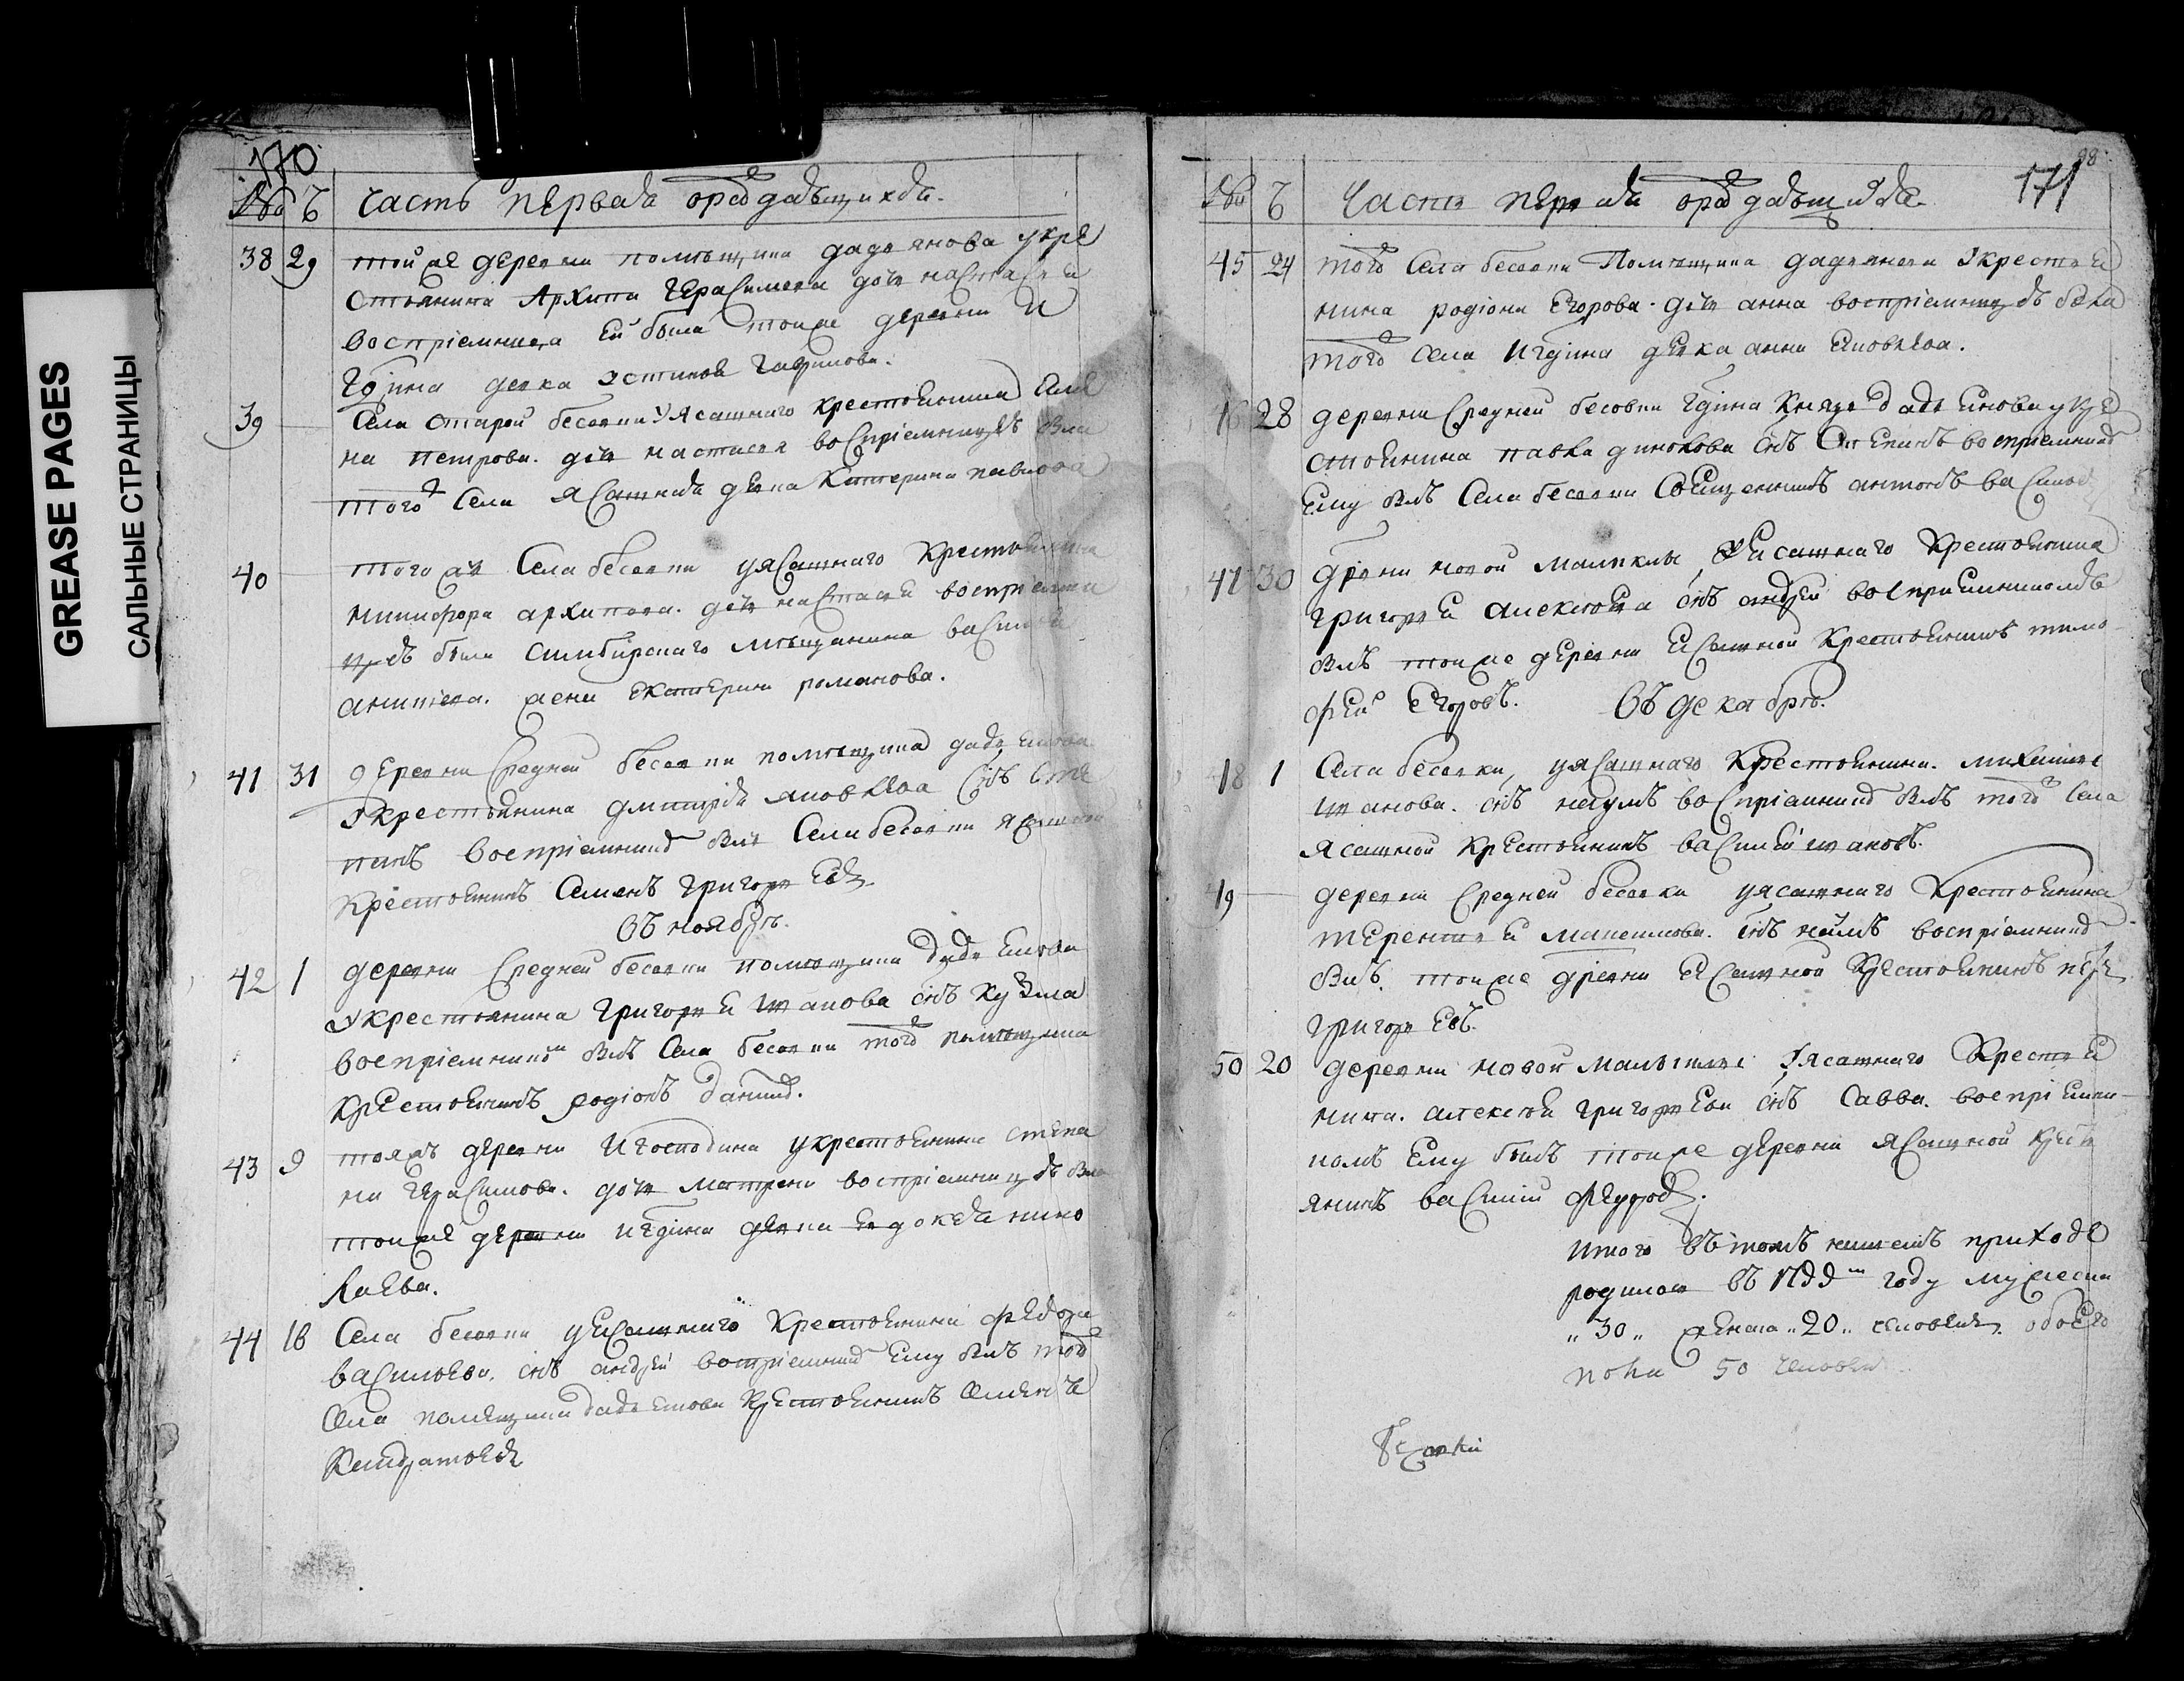 GREASE PAGES
САЛЬНЫЕ СТРАНИЦЫ
170
Ч часть первая о раждающихся.
38 29 тойже деревни помещика дадьянова укре
стьянина Архипа Герасимова дочь настасья
восприемница ей была тойже деревни и
Гдина девка Устинья Гаврилова.
39 Села старой бесовки у ясашнаго крестьянина
на петрова. дочь настасья восприемницею была
того села ясашная девка Катерина павлова
40 того ж Села бесовки у ясашнаго крестьянина
никифора архипова. дочь настасья воспріемни
цею была симбирскаго мещанина василья
антипева. жена екатерина романова.
41 31 деревни Средней бесовки помещика дадьянова
у крестьянина дмитрия яковлева снъ сте
панъ воспріемникъ былъ Села бесовки ясашной
крестьянинъ Семенъ григорьевъ
въ ноябре.
42 1 деревни Средней бесовки помещика дадьянова
у крестьянина григорья иванова снъ кузма
воспріемникъ былъ Села бесовки того помещика
крестьянинъ родіонъ данил.
43 9 тояжъ деревни и господина у крестьянина степа
на герасимова. дочь матрена воспріемницею была
тойже деревни и гдина девка евдокея нико
лаева.
44 16 Села бесовки у ясашнаго крестьянина федора
васильева. снъ андрей воспріемникъ ему былъ того
села помещика дадьянова крестьянинъ семенъ
Кондратьевъ
98
171
Ч Часть первая о раждающихся
45 24 того села бесовки Помещика дадьянова у крестья
нина родіона Егорова. дочь анна воспріемницею была
того села и гдина девка анна яковлева.
46 28 деревни Средней бесовки гдина князя дадьянова укре
стьянина павла снъ Степанъ воспріемникъ
ему былъ Села бесовки Священникъ антонъ васильев
47 30 дрвни новой малыклы у ясашнаго крестьянина
григорья алексеева снъ андрей воспріемникомъ
былъ тойже деревни ясашной крестьянинъ тимо
фей егоровъ. въ декабре.
48 1 Села бесовки, у ясашнаго крестьянина. михайлы
иванова. снъ наумъ воспріемникъ былъ того села
ясашной крестьянинъ василий ивановъ.
49 деревни Средней бесовки у ясашнаго крестьянина
терентья снъ наумъ воспріемникъ
былъ. тойже древни ясашной крестьянинъ петръ
григорьевъ.
50 20 деревни новой малыклы у ясашнаго крестья
нина. алексея григорьева снъ Савва. воспріемни
комъ ему былъ тойже деревни ясашной кресть
янинъ василій федоров.
итого въ томъ приходе
родилось въ году мужеска
„30„ женска „20„ человекъ. обоего
пола 50 человек